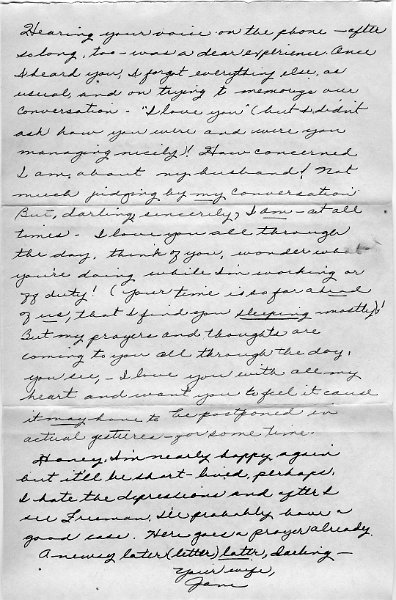 Hearing your voice on the phone - after
so long, too - was a dear experience. Once
I heard you, I forgot everything else, as
usual, and on trying to memorize our
conversation - "I love you" (but I didn't
ask how you were and were you
managing nicely)! How concerned
I am, about my husband! Not
much judging by my conversation!
But, darling, sincerely, I am - at all
times - I love you all through
the day, think of you, wonder what
you're doing while I'm working or
off duty! (Your time is so far ahead
of us, that I find you sleeping mostly)!
But my prayers and thoughts are
coming to you all through the day,
you see, - I love you with all my
heart and want you to feel it cause
it may have to be postponed in
actual gestures - for some time.
Honey, I'm nearly happy again
but it'll be short-lived, perhaps.
I hate the depressions and after I
see Freeman, I'll probably have a
good case. Here goes a prayer already.
A newsy later (letter) later, darling -
Your wife,
Jane